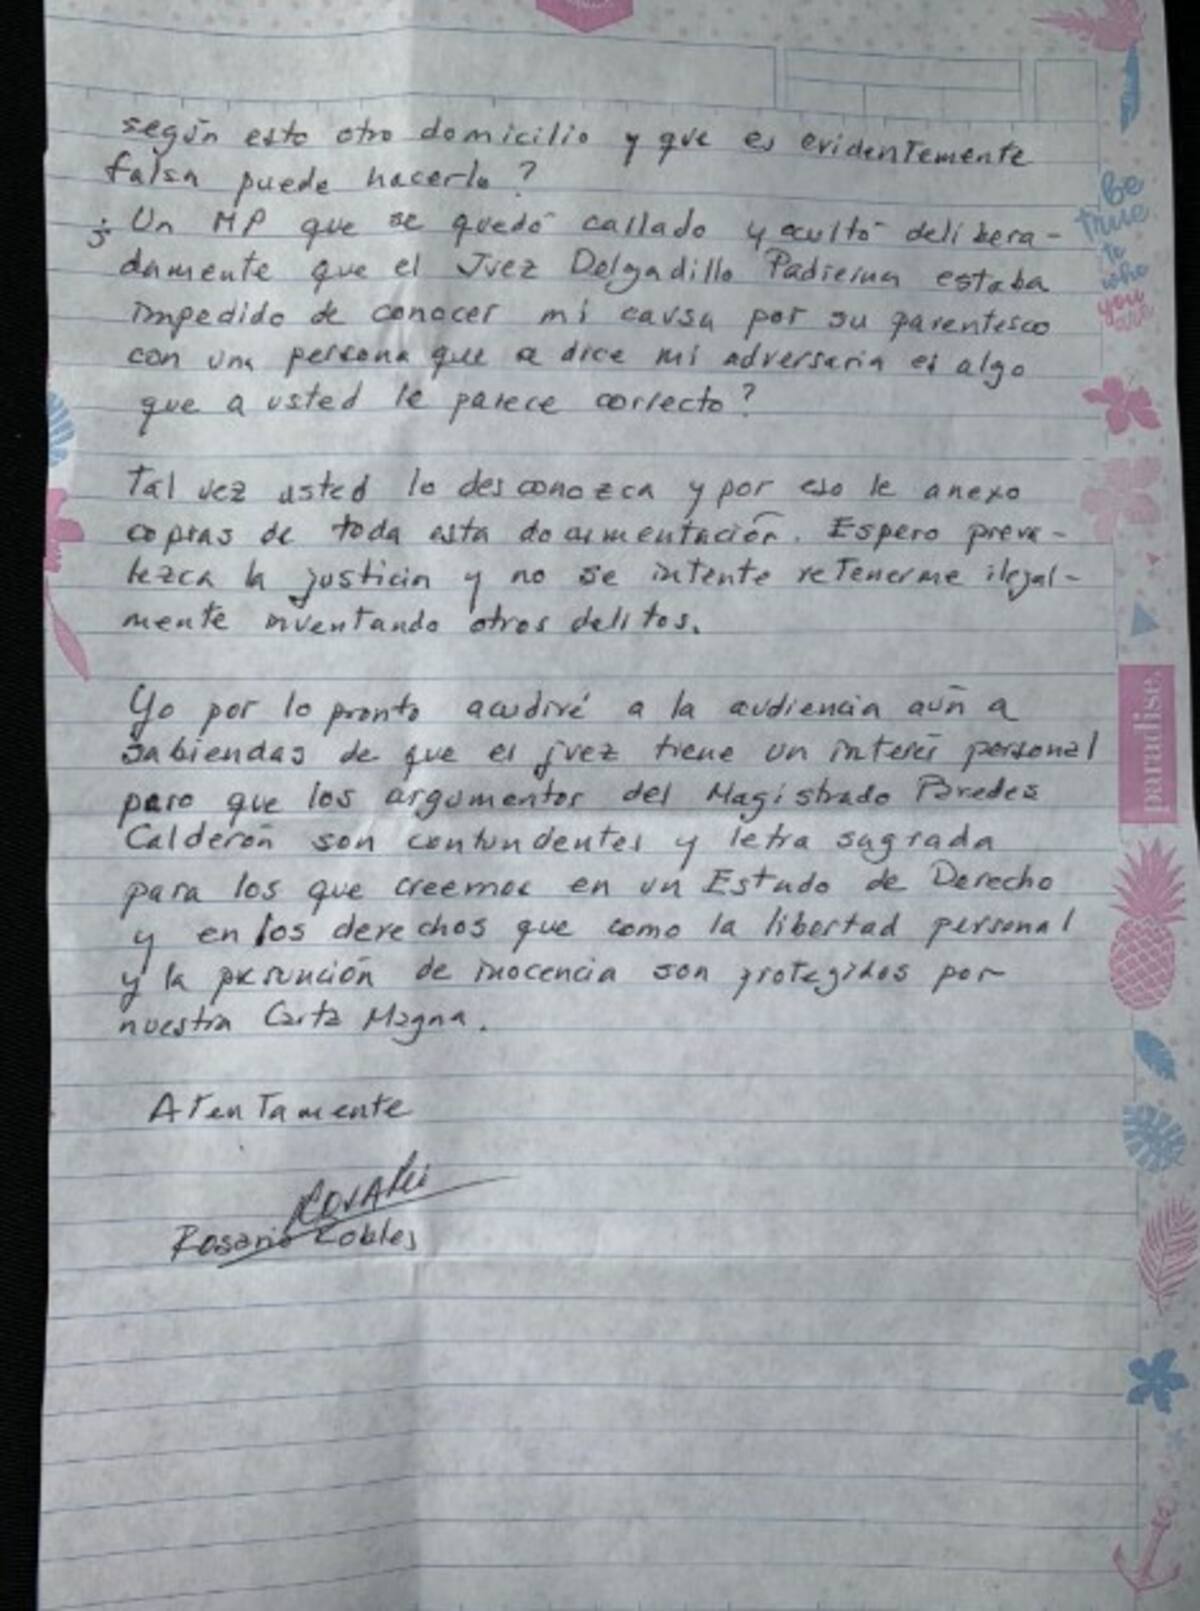 según esto otro domicilio y que es evidentemente
falsa puede hacerlo?
¿Un MP que se quedó callado y ocultó delibera-
damente que el Juez Delgadillo Padierna estaba
impedido de conocer mi causa por su parentesco
con una persona que a dice mi adversaria es algo
que a usted le parece correcto?
Tal vez usted lo desconozca y por eso le anexo
copias de toda esta documentación. Espero preva-
lezca la justicia y no se intente retenerme ilegal-
mente inventando otros delitos.
Yo por lo pronto acudiré a la audiencia aún a
sabiendas de que el juez tiene un interés personal
pero que los argumentos del Magistrado Paredes
Calderón son contundentes y letra sagrada
para los que creemos en un Estado de Derecho
y en los derechos que como la libertad personal
y la presunción de inocencia son protegidos por
nuestra Carta Magna.
Atentamente
ROSARIO
Rosario Robles
be
true
to
who
you
are
paradise.